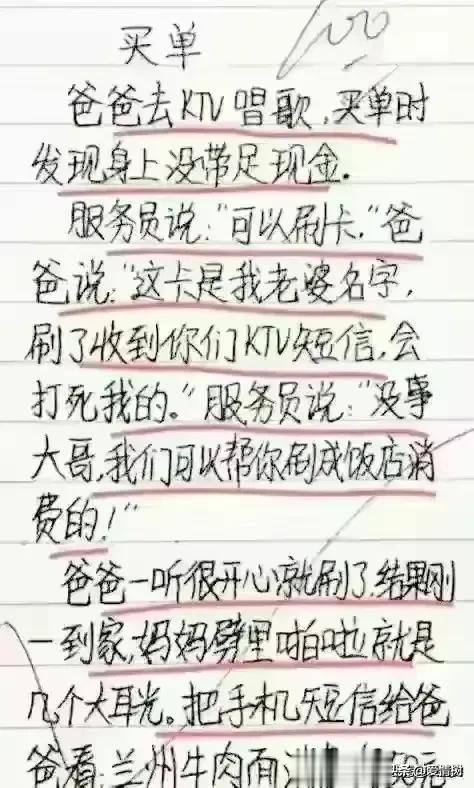 买单
100
爸爸去KTV唱歌，买单时
发现身上没带足现金。
服务员说："可以刷卡."爸
爸说："这卡是我老婆名字，
刷了收到你们KTV短信，会
打死我的。"服务员说："没事
大哥，我们可以帮你刷成饭店消
费的！"
爸爸一听很开心就刷了，结果刚
一到家，妈妈劈里啪啦就是
几个大耳光。把手机短信给爸
爸看：兰州牛肉面 元
头条@爱情树